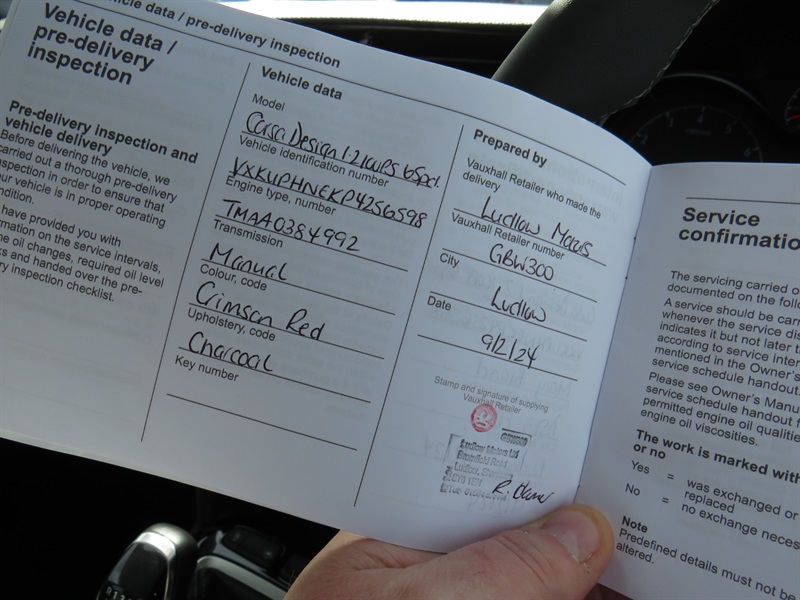 Vehicle data / pre-delivery inspection
Vehicle data /
pre-delivery
inspection
Pre-delivery inspection and
vehicle delivery
Before delivering the vehicle, we
carried out a thorough pre-delivery
inspection in order to ensure that
your vehicle is in proper operating
condition.
have provided you with
information on the service intervals,
oil changes, required oil level
and handed over the pre-
delivery inspection checklist.
Vehicle data
Model
Corsa Design 1.2 100PS 6Spd.
Vehicle identification number
VXKUPHNEKP4256598
Engine type, number
TMAA0384992
Transmission
Manual
Colour, code
Crimson Red
Upholstery, code
Charcoal
Key number
Prepared by
Vauxhall Retailer who made the
delivery
Ludlow Motors
Vauxhall Retailer number
GBW300
City
Ludlow
Date
9/2/24
Stamp and signature of supplying
Vauxhall Retailer
GBW300
Ludlow Motors Ltd
Bromfield Road
Ludlow, Shropshire
Service
confirmation
The servicing carried
documented on the
A service should be
whenever the service
indicates it but not later
according to service
mentioned in the Owner's
service schedule handout.
Please see Owner's
service schedule handout
permitted engine oil
engine oil viscosities.
The work is marked with
or no
Yes = was exchanged or
replaced
No = no exchange
Note
Predefined details must not be
altered.